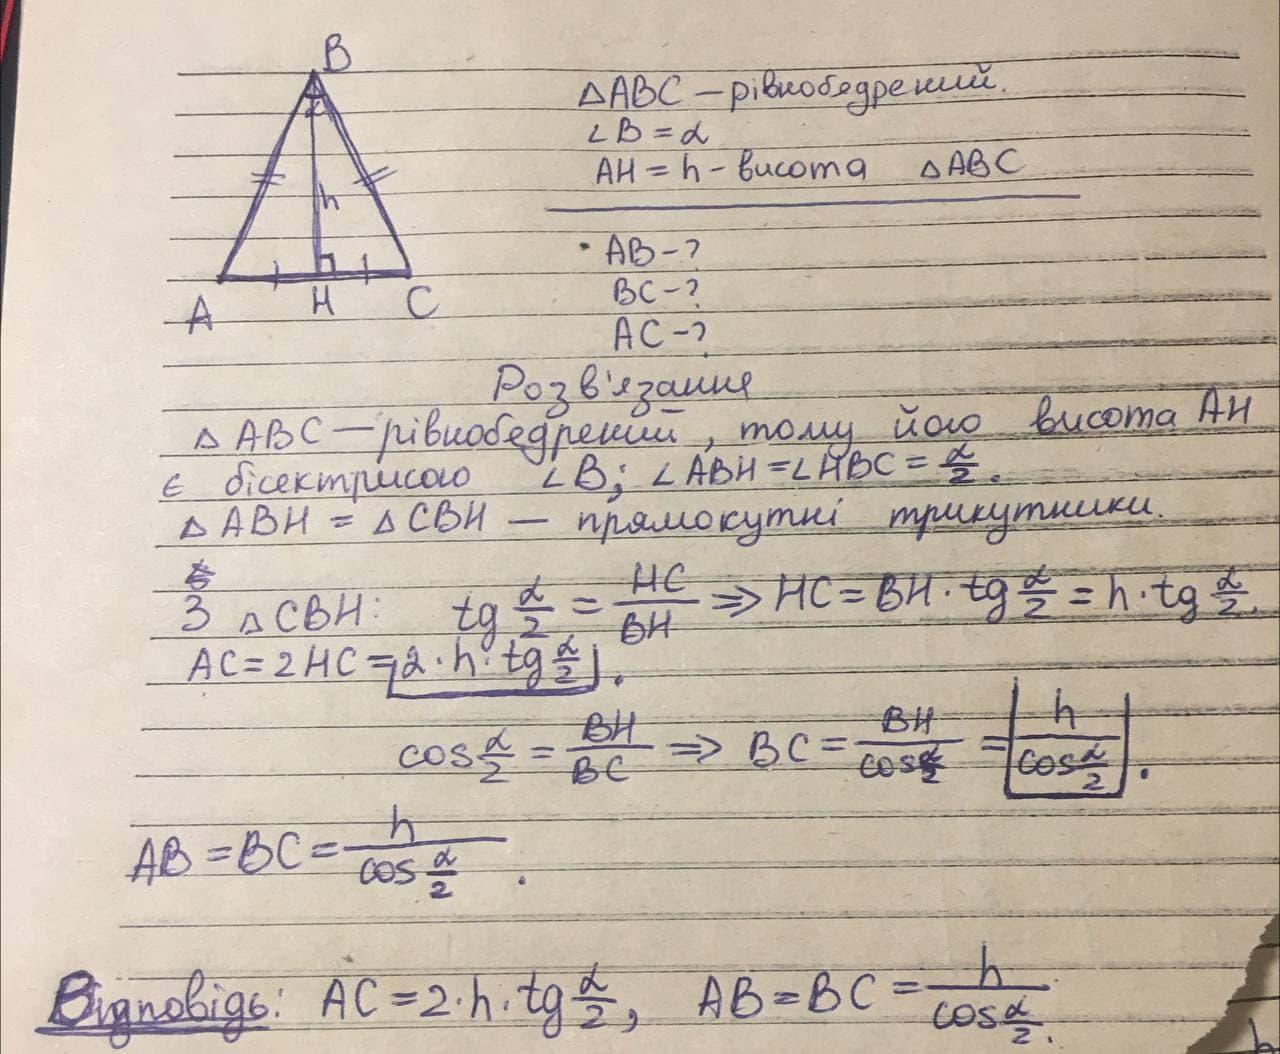 B
△ABC – рівнобедрений.
∠B = α
AH = h – висота △ABC
h
AB – ?
BC – ?
AC – ?
A H C
Розв'язання
△ABC – рівнобедрений, тому його висота AH
є бісектрисою ∠B; ∠ABH = ∠HBC = α/2.
△ABH = △CBH – прямокутні трикутники.
З △CBH: tg α/2 = HC/BH => HC = BH · tg α/2 = h · tg α/2.
AC = 2HC = 2 · h · tg α/2.
cos α/2 = BH/BC => BC = BH/cos α/2 = h/cos α/2.
AB = BC = h/cos α/2.
Відповідь: AC = 2 · h · tg α/2, AB = BC = h/cos α/2.
h